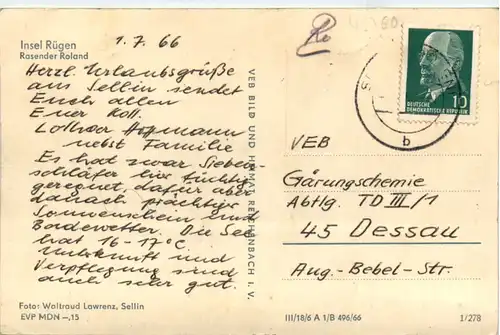 Insel Rügen
Rasender Roland
1.7.66
Herzl. Urlaubsgrüße
aus Sellin sendet
Euch allen
Euer Koll.
Lothar Hoffmann
nebst Familie
Es hat zwar Sieben-
schläfer hier tüchtig
geregnet, dafür aber
danach prächtig
Sonnenschein und
Badewetter. Die See
hat 16-17°C
Unterkunft und
Verpflegung sind
auch sehr gut.
Foto: Waltraud Lawrenz, Sellin
EVP MDN –,15
VEB BILD UND HEIMAT REICHENBACH I. V.
60
DEUTSCHE
DEMOKRATISCHE REPUBLIK
10
b
VEB
Gärungschemie
Abtlg. TD III/1
45 Dessau
Aug.-Bebel-Str.
III/18/6 A 1/B 496/66
1/278